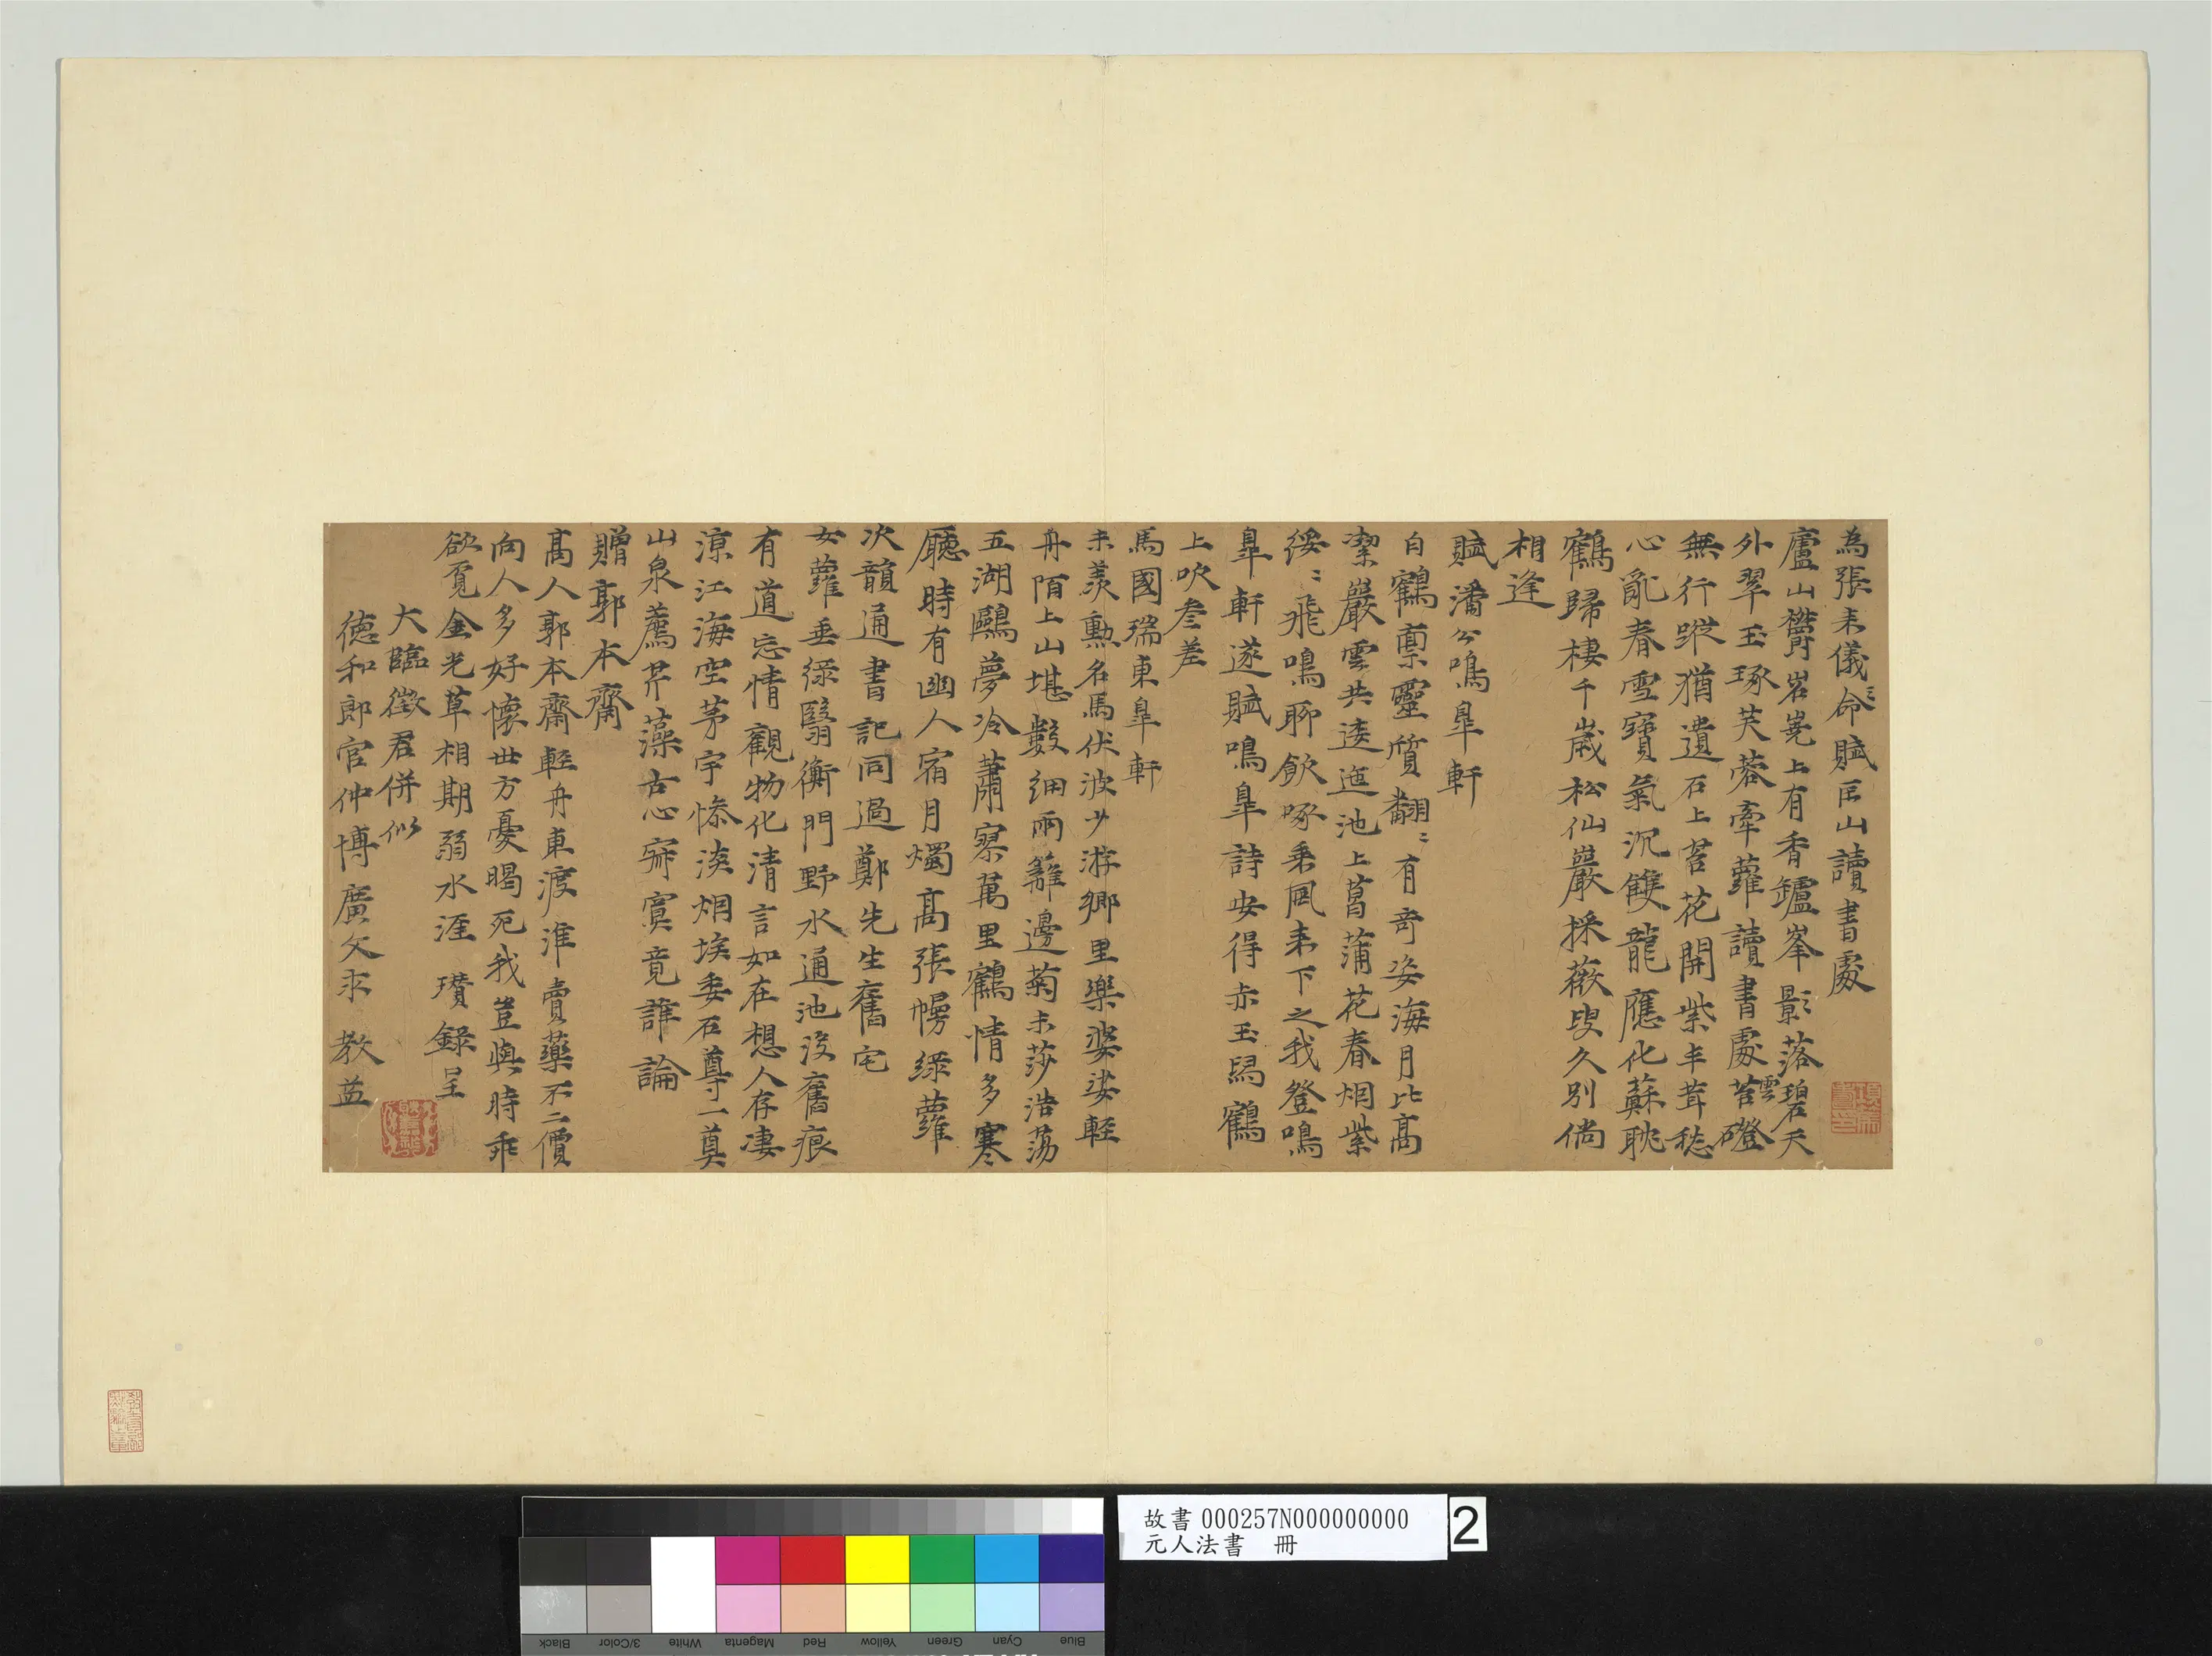 為張来儀命賦匡山讀書處
廬山欝岧嶤上有香鑪峯影落碧雲天
外翠玉琢芙蓉牽蘿讀書處苔磴
無行蹤猶遺石上苔花開紫丰茸愁
心亂春雪寶氣沉雙龍應化蘇耽
鶴歸棲千歲松仙巖採薇叟久別倘
相逢
賦潘公鳴臯軒
白鶴稟靈質翻〻有奇姿海月比高
潔巖雲共逶迤池上菖蒲花春烟紫
綏〻飛鳴聊飲啄乗風来下之我登鳴
臯軒遂賦鳴臯詩安得赤玉舄鶴
上吹叁差
馬國瑞東臯軒
未羨勳名馬伏波少游鄉里樂婆娑輕
舟陌上山堪數細雨籬邊菊未莎浩蕩
五湖鷗夢冷蕭寥萬里鶴情多寒
廳時有幽人宿月燭高張幔綠蘿
次韻通書記同過鄭先生舊宅
女蘿垂綠翳衡門野水通池没舊痕
有道忘情觀物化清言如在想人存凄
涼江海空茅宇慘淡烟埃委石尊一奠
山泉薦芹藻古心寂寞竟誰論
贈郭本齋
高人郭本齋輕舟東渡淮賣藥不二價
向人多好懷世方憂暍死我豈與時乖
欲覓金光草相期弱水涯 瓚錄呈
大臨徵君併似
德和郎官仲博廣文求 教益
故書 000257N000000000
元人法書 冊
2
Black
3/Color
White
Magenta
Red
Yellow
Green
Cyan
Blue